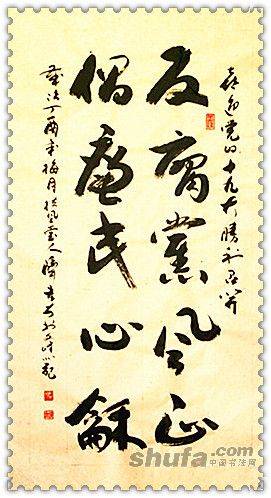 喜迎党的十九大胜利召开
反腐党风正
倡廉民心龢
歲次丁酉年梅月
shufa.com
中国书法网